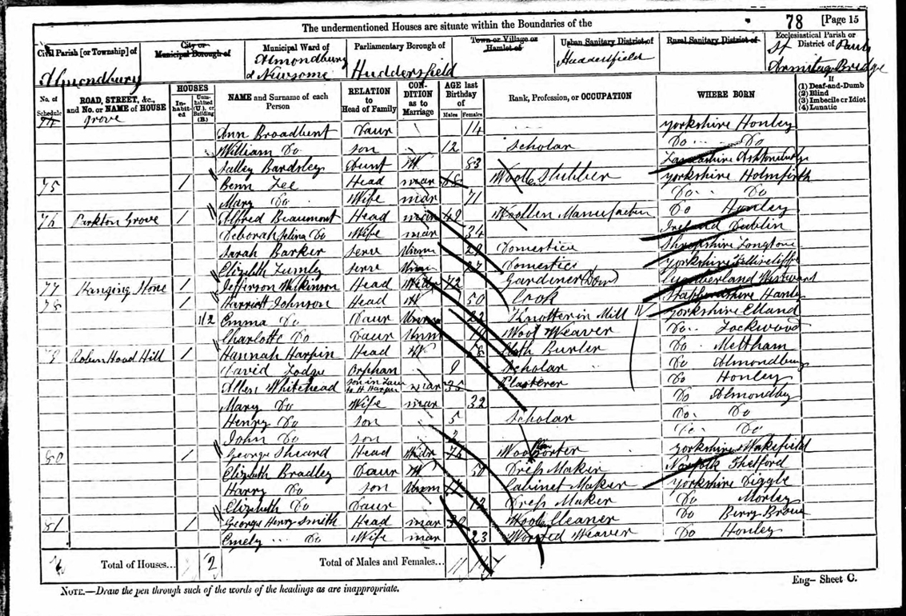 The undermentioned Houses are situate within the Boundaries of the
78 [Page 15
Civil Parish [or Township] of
City or Municipal Borough of
Municipal Ward of
Parliamentary Borough of
Town or Village or Hamlet of
Urban Sanitary District of
Rural Sanitary District of
Ecclesiastical Parish or District of
Almondbury
Almondbury & Newsome
Huddersfield
Huddersfield
St Pauls Armitage Bridge
No. of Schedule
ROAD, STREET, &c., and No. or NAME of HOUSE
HOUSES
Inhabited
Uninhabited (U.), or Building (B.)
NAME and Surname of each Person
RELATION to Head of Family
CONDITION as to Marriage
AGE last Birthday of
Males
Females
Rank, Profession, or OCCUPATION
WHERE BORN
If
(1) Deaf-and-Dumb
(2) Blind
(3) Imbecile or Idiot
(4) Lunatic
74 Grove
Ann Broadbent Daur 14 Yorkshire Honley
William Do son 12 Scholar Do Do
Salley Bardsley Aunt W 83 Lancashire
75 1 Benn Lee Head mar Yorkshire Holmfirth
Mary Do Wife mar 71 Do Do
76 Parkton Grove 1 Alfred Beaumont Head mar 49 Woollen Manufacturer Do Honley
Deborah Selina Do Wife mar 34 Ireland Dublin
Sarah Barker Serv Unm Domestics Shropshire
Elizabeth Lumley Serv Unm 27 Domestics Yorkshire
77 Hanging Stone 1 Jefferson Wilkinson Head Widr 42 Gardiner Dom Cumberland
78 1 Harriott Johnson Head W 50 Cook Staffordshire Hanley
Emma Do Daur Unm 22 Knotter in Mill Yorkshire Elland
Charlotte Do Daur Unm Wool Weaver Do Lockwood
79 Robin Hood Hill 1 Hannah Harpin Head W Cloth Burler Do Meltham
David Lodge Orphan 9 Scholar Do Almondbury
Allen Whitehead son in Law to H Harpin mar Plasterer Do Honley
Mary Do Wife mar 32 Do Almondby
Henry Do son 5 Scholar Do Do
John Do son Do Do
80 1 George Sheard Head Widr Yorkshire Wakefield
Elizabeth Bradley Daur W Dress Maker Norfolk Thetford
Harry Do son Unm Cabinet Maker Yorkshire Diggle
Elizabeth Do Daur Dress Maker Do Morley
81 1 George Henry Smith Head mar Wool Cleaner Do Berry Brow
Emely Do Wife mar 23 Worsted Weaver Do Honley
Total of Houses... 2
Total of Males and Females...
NOTE.—Draw the pen through such of the words of the headings as are inappropriate.
Eng—Sheet C.